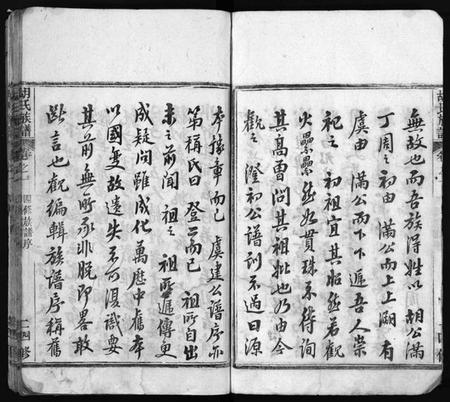 無故也而吾族得姓以胡公滿
丁周之初由滿公而上上溯有
虞由滿公而下下逮吾人崇
祀之祖宜其昭然若觀
火纍纍然如貫珠不待詢
其高曾問其祖妣也乃由今
觀之澄初公譜訓不過曰源
本接章而已虞建公譜序亦
第稱氏曰登公而已祖所自出
未之前聞祖之祖所遞傳更
成疑問雖成化萬歷中舊本
以國變故遺失不可復識要
其前無所承非脫即畧敢
斷言也觀編輯族譜序稱舊
胡氏族譜
卷之一
四修族譜序
二四修